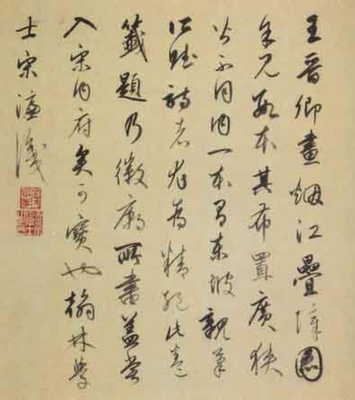 王晉卿畫烟江疊障圖
余見數本其布置廣狹
皆不同內一本有東坡親筆
江賦詩者尤為精絕此卷
籤題乃徽廟所書蓋嘗
入宋內府矣可寶也翰林學
士宋濂識